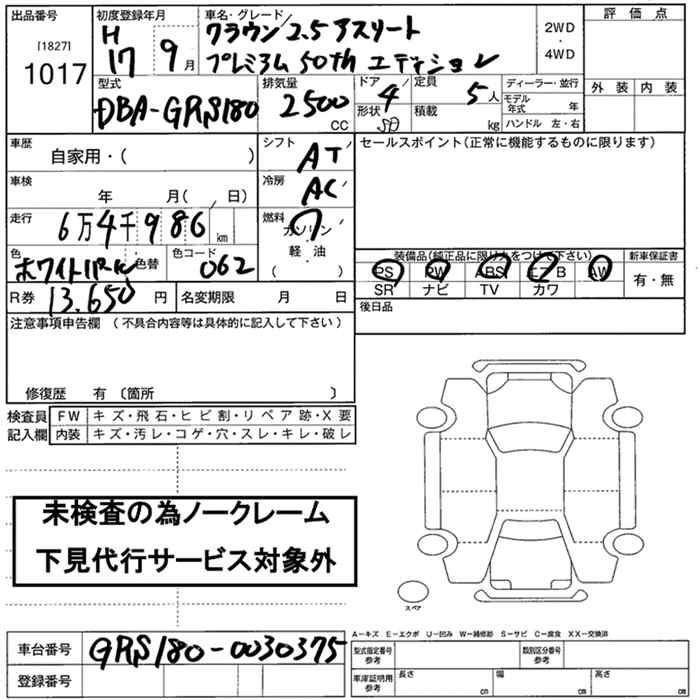 出品番号
[1827]
1017
初度登録年月
H
17 9月
車名・グレード
クラウン 2.5 アスリート
プレミアム 50th エディション
2WD
・
4WD
評価点
外装 内装
型式
DBA-GRS180
排気量
2500
CC
ドア
4
形状
SD
定員
5人
積載
kg
ディーラー・並行
モデル年式 年
ハンドル 左・右
車歴
自家用・( )
シフト
AT
セールスポイント(正常に機能するものに限ります)
車検
年 月( 、 日)
冷房
AC
走行
6万4千986km
燃料
ガソリン
軽・油
( )
色
ホワイトパール
色替
色コード
062
装備品(純正品に限り丸をつけて下さい)
PS PW ABS エアB AW
SR ナビ TV カワ
新車保証書
有・無
R券
13.650円
名変期限 月 日
後日品
注意事項申告欄 (不具合内容等は具体的に記入して下さい)
修復歴 有 〔箇所 〕
検査員
記入欄
FW キズ・飛石・ヒビ割・リペア跡・X要
内装 キズ・汚レ・コゲ・穴・スレ・キレ・破レ
未検査の為ノークレーム
下見代行サービス対象外
スペア
A-キズ E-エクボ U-凹み W-補修跡 S-サビ C-腐食 XX-交換済
車台番号
GRS180-0030375
登録番号
型式指定番号
参考
類別区分番号
参考
車庫証明用
参考
長さ cm
幅 cm
高さ cm